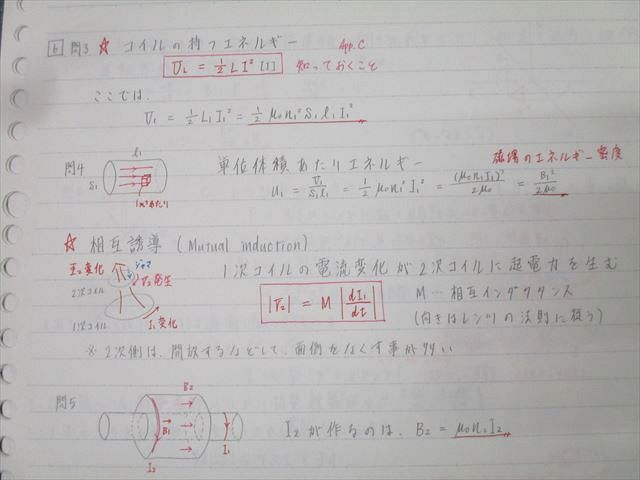 6 問3 ☆ コイルの持つエネルギー App.C
U₁ = ½ L I² [J] 知っておくこと
ここでは、
U₁ = ½ L₁ I₁² = ½ μ₀ n₁² S₁ l₁ I₁²
問4 l₁ S₁ 1m³あたり
単位体積あたりエネルギー 磁場のエネルギー密度
u₁ = U₁/S₁l₁ = ½ μ₀ n₁² I₁² = (μ₀ n₁ I₁)²/2μ₀ = B₁²/2μ₀
☆ 相互誘導 (Mutual induction)
1次コイルの電流変化が2次コイルに起電力を生む
Φ₂変化 ジャマ V₂発生
2次コイル
1次コイル I₁変化
|V₂| = M |dI₁/dt|
M…相互インダクタンス
(向きはレンツの法則に従う)
※ 2次側は、開放するなどして、面倒をなくす事が多い
問5 B₂ B₁ I₂ I₁
I₂が作るのは、B₂ = μ₀ n₂ I₂